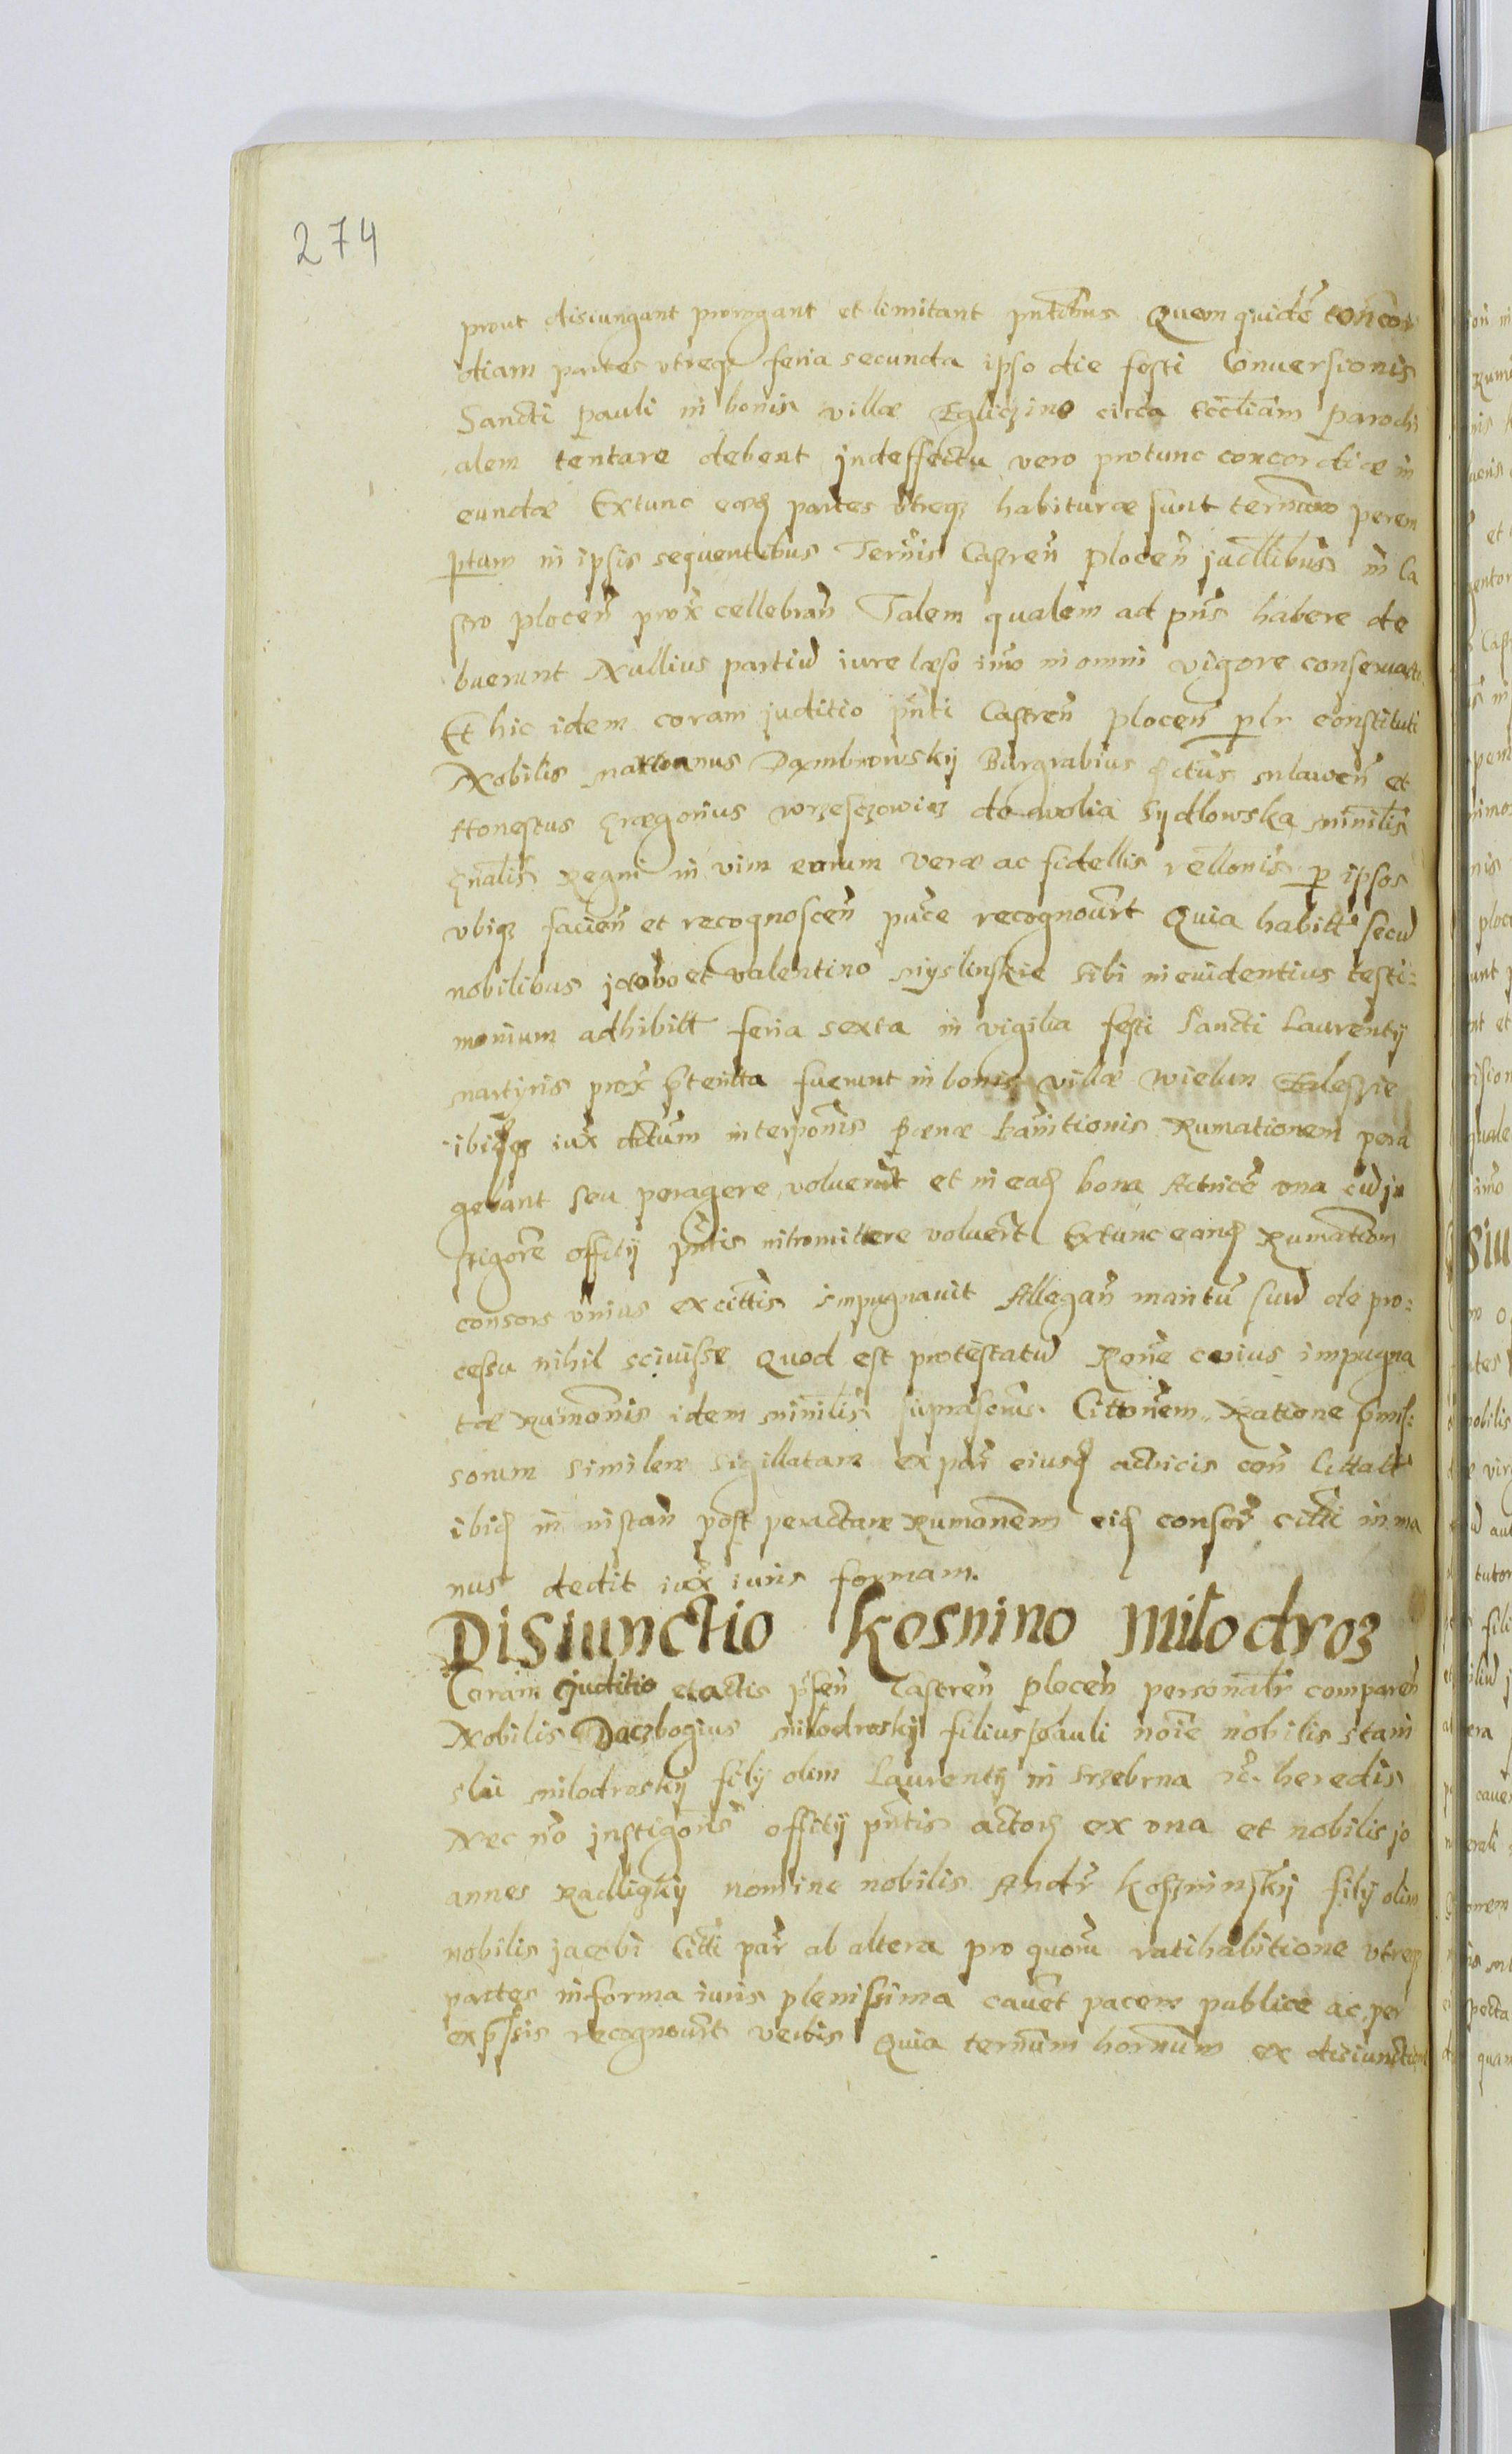 274
prout disiungant prorogant et limitant pntibus Quem quidē concor
diam partes vtreqȝ feria secunda ipso die festi Conuersionis
Sancti pauli in bonis villæ Egliczino circa Ecclīam parochi
alem tentare debent jndeffectu vero protunc concordiæ in
eundæ Extunc eædȝ partes vtreqȝ habituræ sunt ternum perem
ptum in ipsis sequentibus Ternis Castren̄ plocen̄ juditlibus in Ca
stro plocen̄ prox̄ cellebran̄ Talem qualem ad pn̄s habere de
buerunt Nullius partiū iure læso imo in omni vigore conseruato
Et hic idem coram juditio pn̄ti Castren̄ plocen̄ plr constituti
Nobilis Dambrowskij Burgrabius mlawen̄ et
Honestus Grægorius wrzesczowicz de wolia Sijdlowska minilis
Gnalis Regni in vim eorum veræ ac fidellis rellonis p ipsos
vbiqȝ facien̄ et recognoscen̄ puce recognouer̄t Quia habitt secū
nobilibus jacobo et valentino mijslinskie sibi in euidentius testi:
monium adhibitt feria sexta in vigilia festi Sancti Laurentij
martijris prox̄ ptenta fuerunt in bonis villæ wielun Zaleszie
ibiqȝ iux̄ dctum interponis pænæ banitionis Rumationem pera
gebant seu peragere voluerunt et in eadȝ bona Actricē vna cū jn
stigore offitij pn̄tis intromittere voluer̄t Extunc eandȝ Rumationem
consors vnius excittis impugnauit Allegan̄ maritū suū de pro:
cessu nihil sciuisse Quod est protestatū Rōne cuius impugna
tæ Rumōnis idem minilis suprascrus Cittōnem Ratione pmis:
sorum similem sigillatam ex par̄ eiusdȝ actricis con̄ Cittatt
ibidȝ in instan̄ post peractam Rumonem eidȝ consor̄ citti in ma
nus dedit iux̄ iuris formam.
Disiunctio Kosnino milodroz
Coram juditio et actis p̄sen̄ Castren̄ plocen̄ personalr̄ comparen̄
Nobilis Daczbogius milodroskij filius pauli noīe nobilis stani
slai milodroskij filij olim Laurentij in srzebrna rc. heredis
Nec nō jnstigoris offitij pn̄tis actorȝ ex vna et nobilis jo
annes Radligkij nomine nobilis Andr̄ koszninskij filij olim
nobilis jacobi Citti par̄ ab altera pro quorū ratihabitione vtreqȝ
partes informa iuris plenissima cauēt pacem publice ac per
exp̄ssis recognouer̄t verbis Quia ternum hornum ex disiunctione